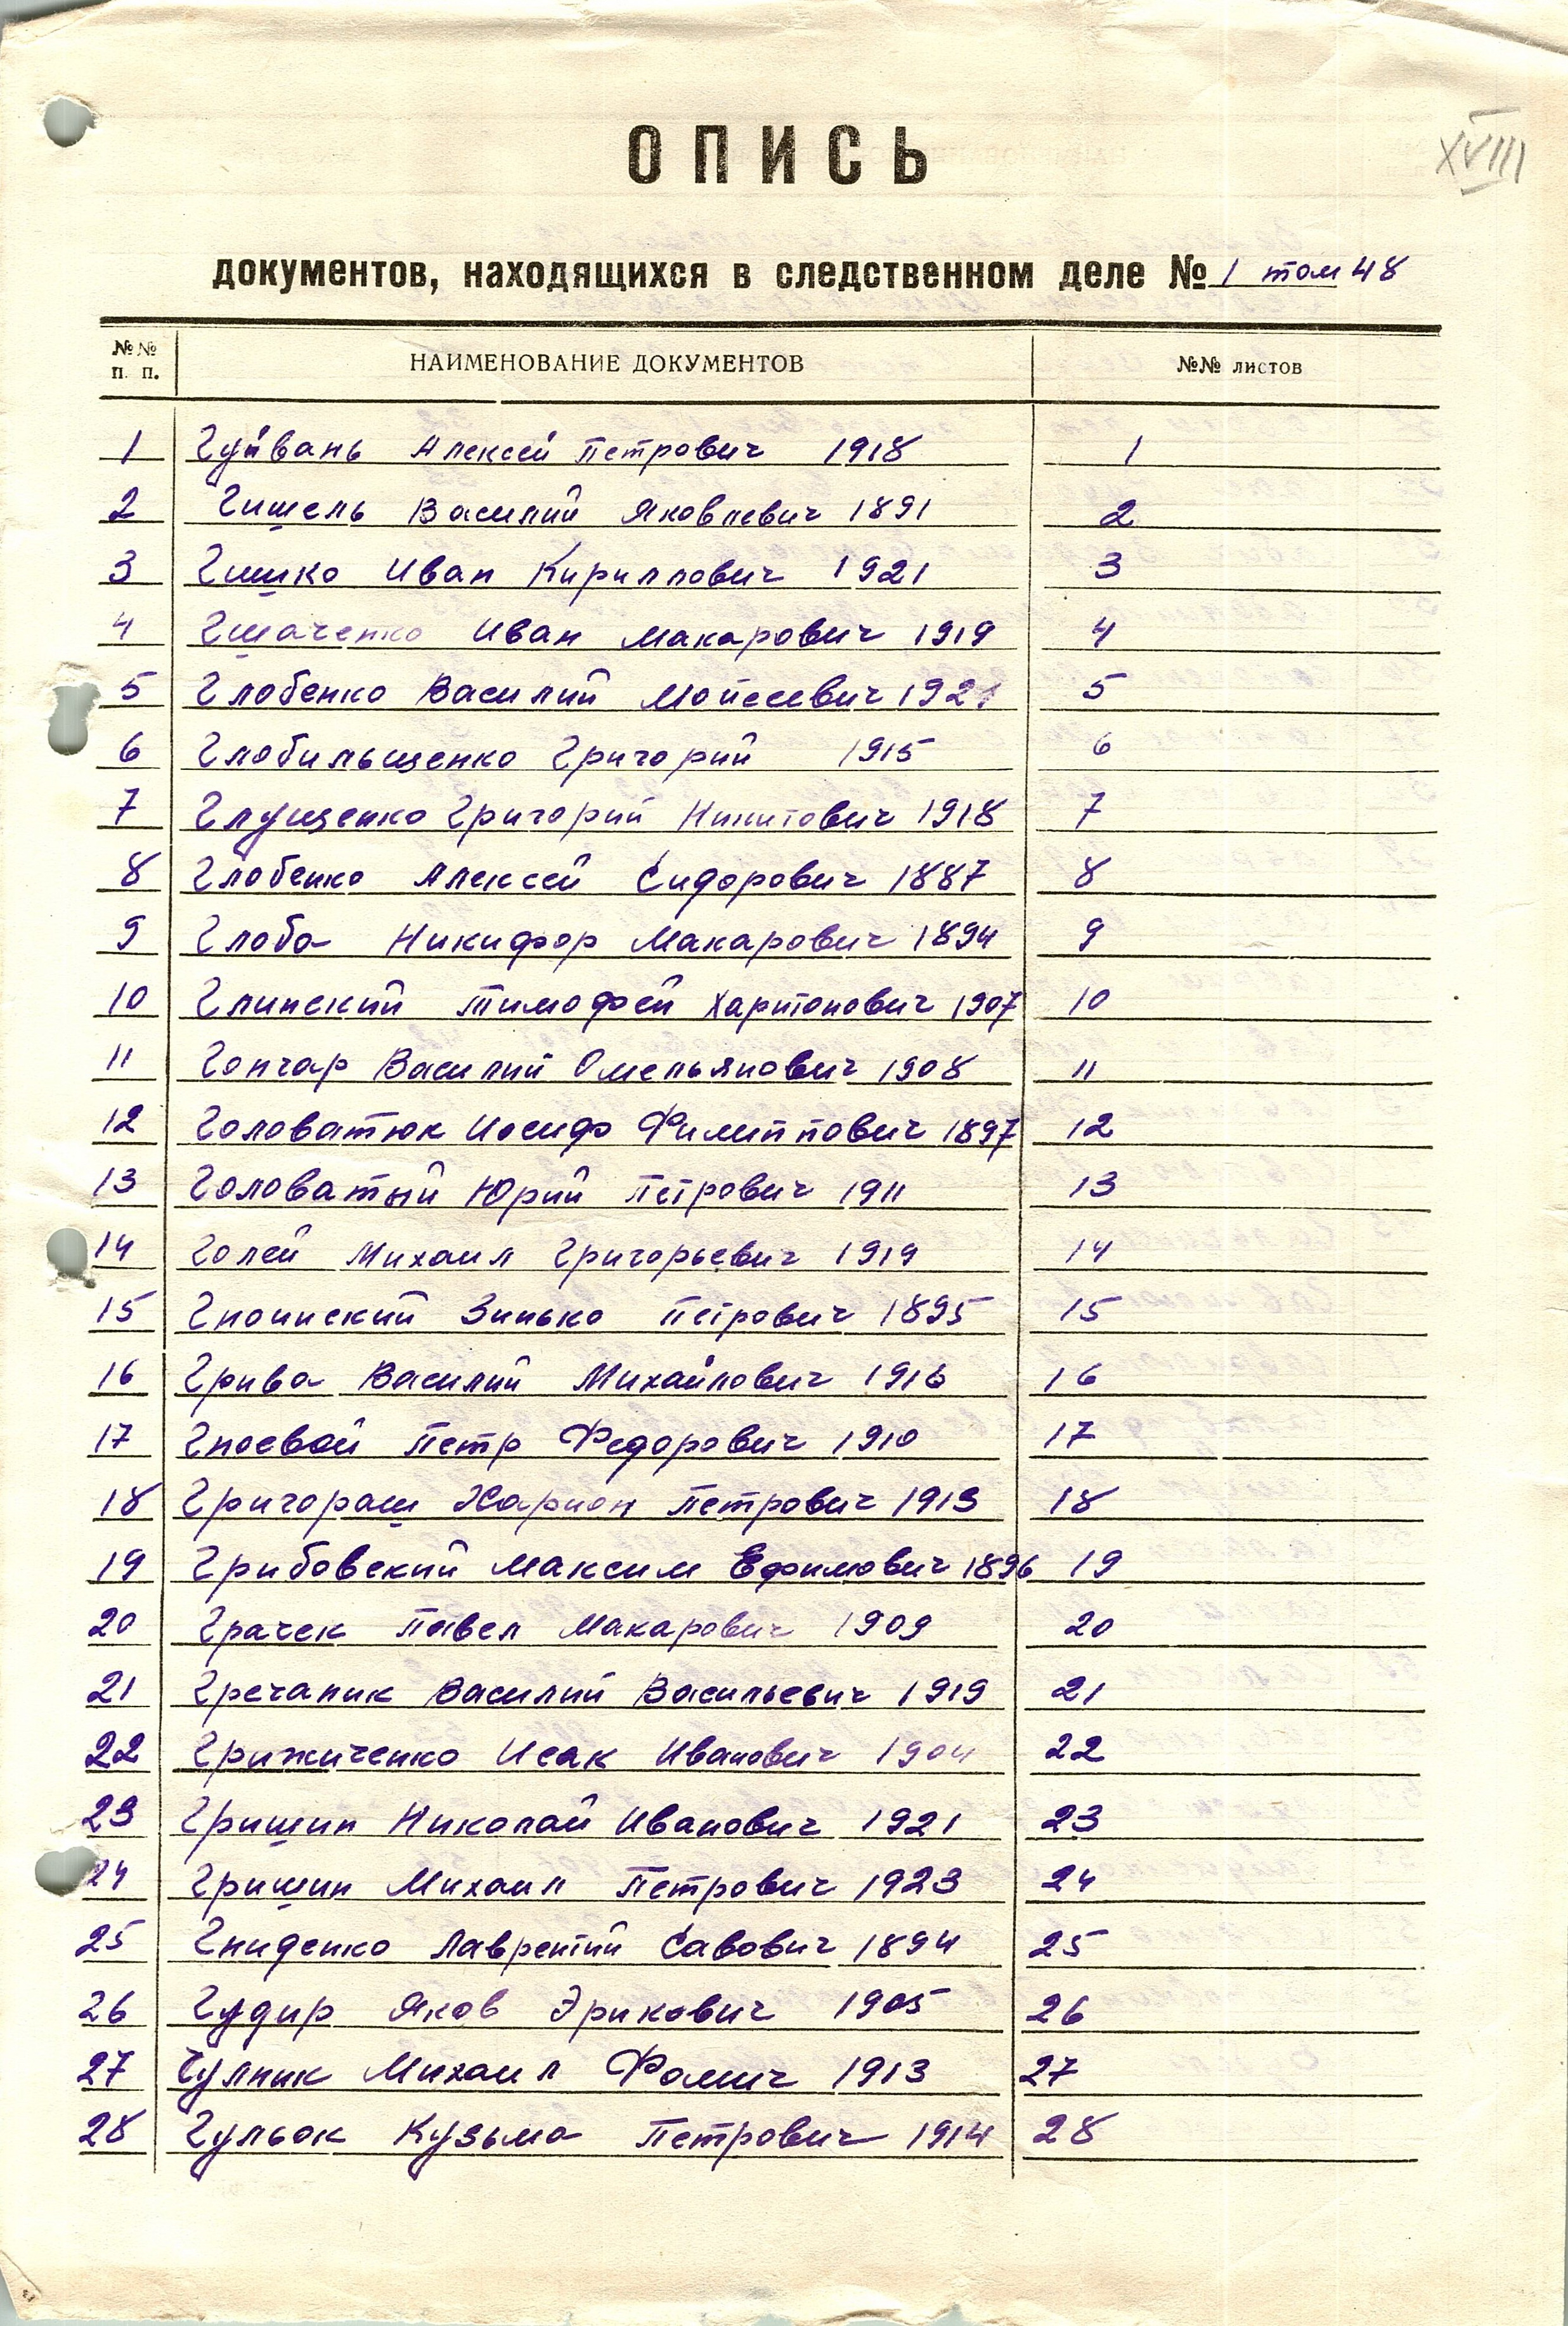 XVIII
ОПИСЬ
документов, находящихся в следственном деле № 1 том 48
№№ п. п. НАИМЕНОВАНИЕ ДОКУМЕНТОВ №№ листов
1 Гуйвань Алексей Петрович 1918 1
2 Гишель Василий Яковлевич 1891 2
3 Гишко Иван Кириллович 1921 3
4 Иван Макарович 1919 4
5 Глобенко Василий Мойсеевич 1921 5
6 Глобильщенко Григорий 1915 6
7 Глущенко Григорий Никитович 1918 7
8 Глобенко Алексей Сидорович 1887 8
9 Глоба Никифор Макарович 1894 9
10 Глинский Тимофей Харитонович 1907 10
11 Гончар Василий Омельянович 1908 11
12 Головатюк Иосиф Филиппович 1897 12
13 Головатый Юрий Петрович 1911 13
14 Голей Михаил Григорьевич 1919 14
15 Гноинский Зинько Петрович 1895 15
16 Грива Василий Михайлович 1916 16
17 Гноевой Петр Федорович 1910 17
18 Григораш Харион Петрович 1913 18
19 Грибовский Максим Ефимович 1896 19
20 Грачек Павел Макарович 1909 20
21 Гречаник Василий Васильевич 1919 21
22 Грижиченко Исак Иванович 1904 22
23 Гришин Николай Иванович 1921 23
24 Гришин Михаил Петрович 1923 24
25 Гниденко Лаврентий Савович 1894 25
26 Гудир Яков Эрикович 1905 26
27 Гулник Михаил Фомич 1913 27
28 Гульок Кузьма Петрович 1914 28